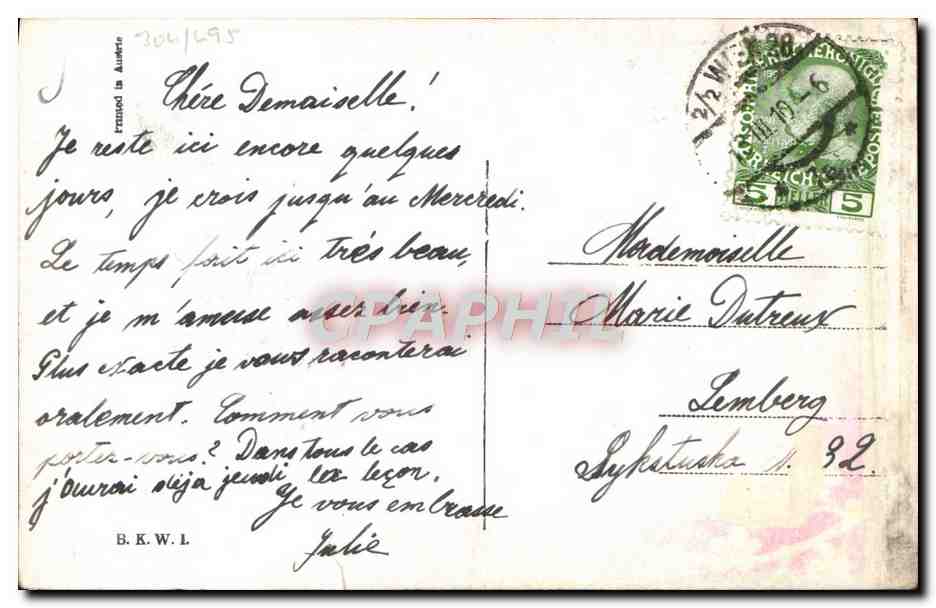 304/495
Printed in Austria
Chère Demaiselle!
Je reste ici encore quelques
jours, je crois jusqu'au Mercredi.
Le temps fait ici très beau,
et je m'amuse assez bien.
Plus exacte je vous raconterai
oralement. Comment vous
portez-vous? Dans tous le cas
j'aurai déja jeudi la leçon.
Je vous embrasse
Julie
B. K. W. I.
Mademoiselle
Marie Dutreux
Lemberg
Sykstuska N. 32.
2/2 WIEN
5 5
CPAPHIL